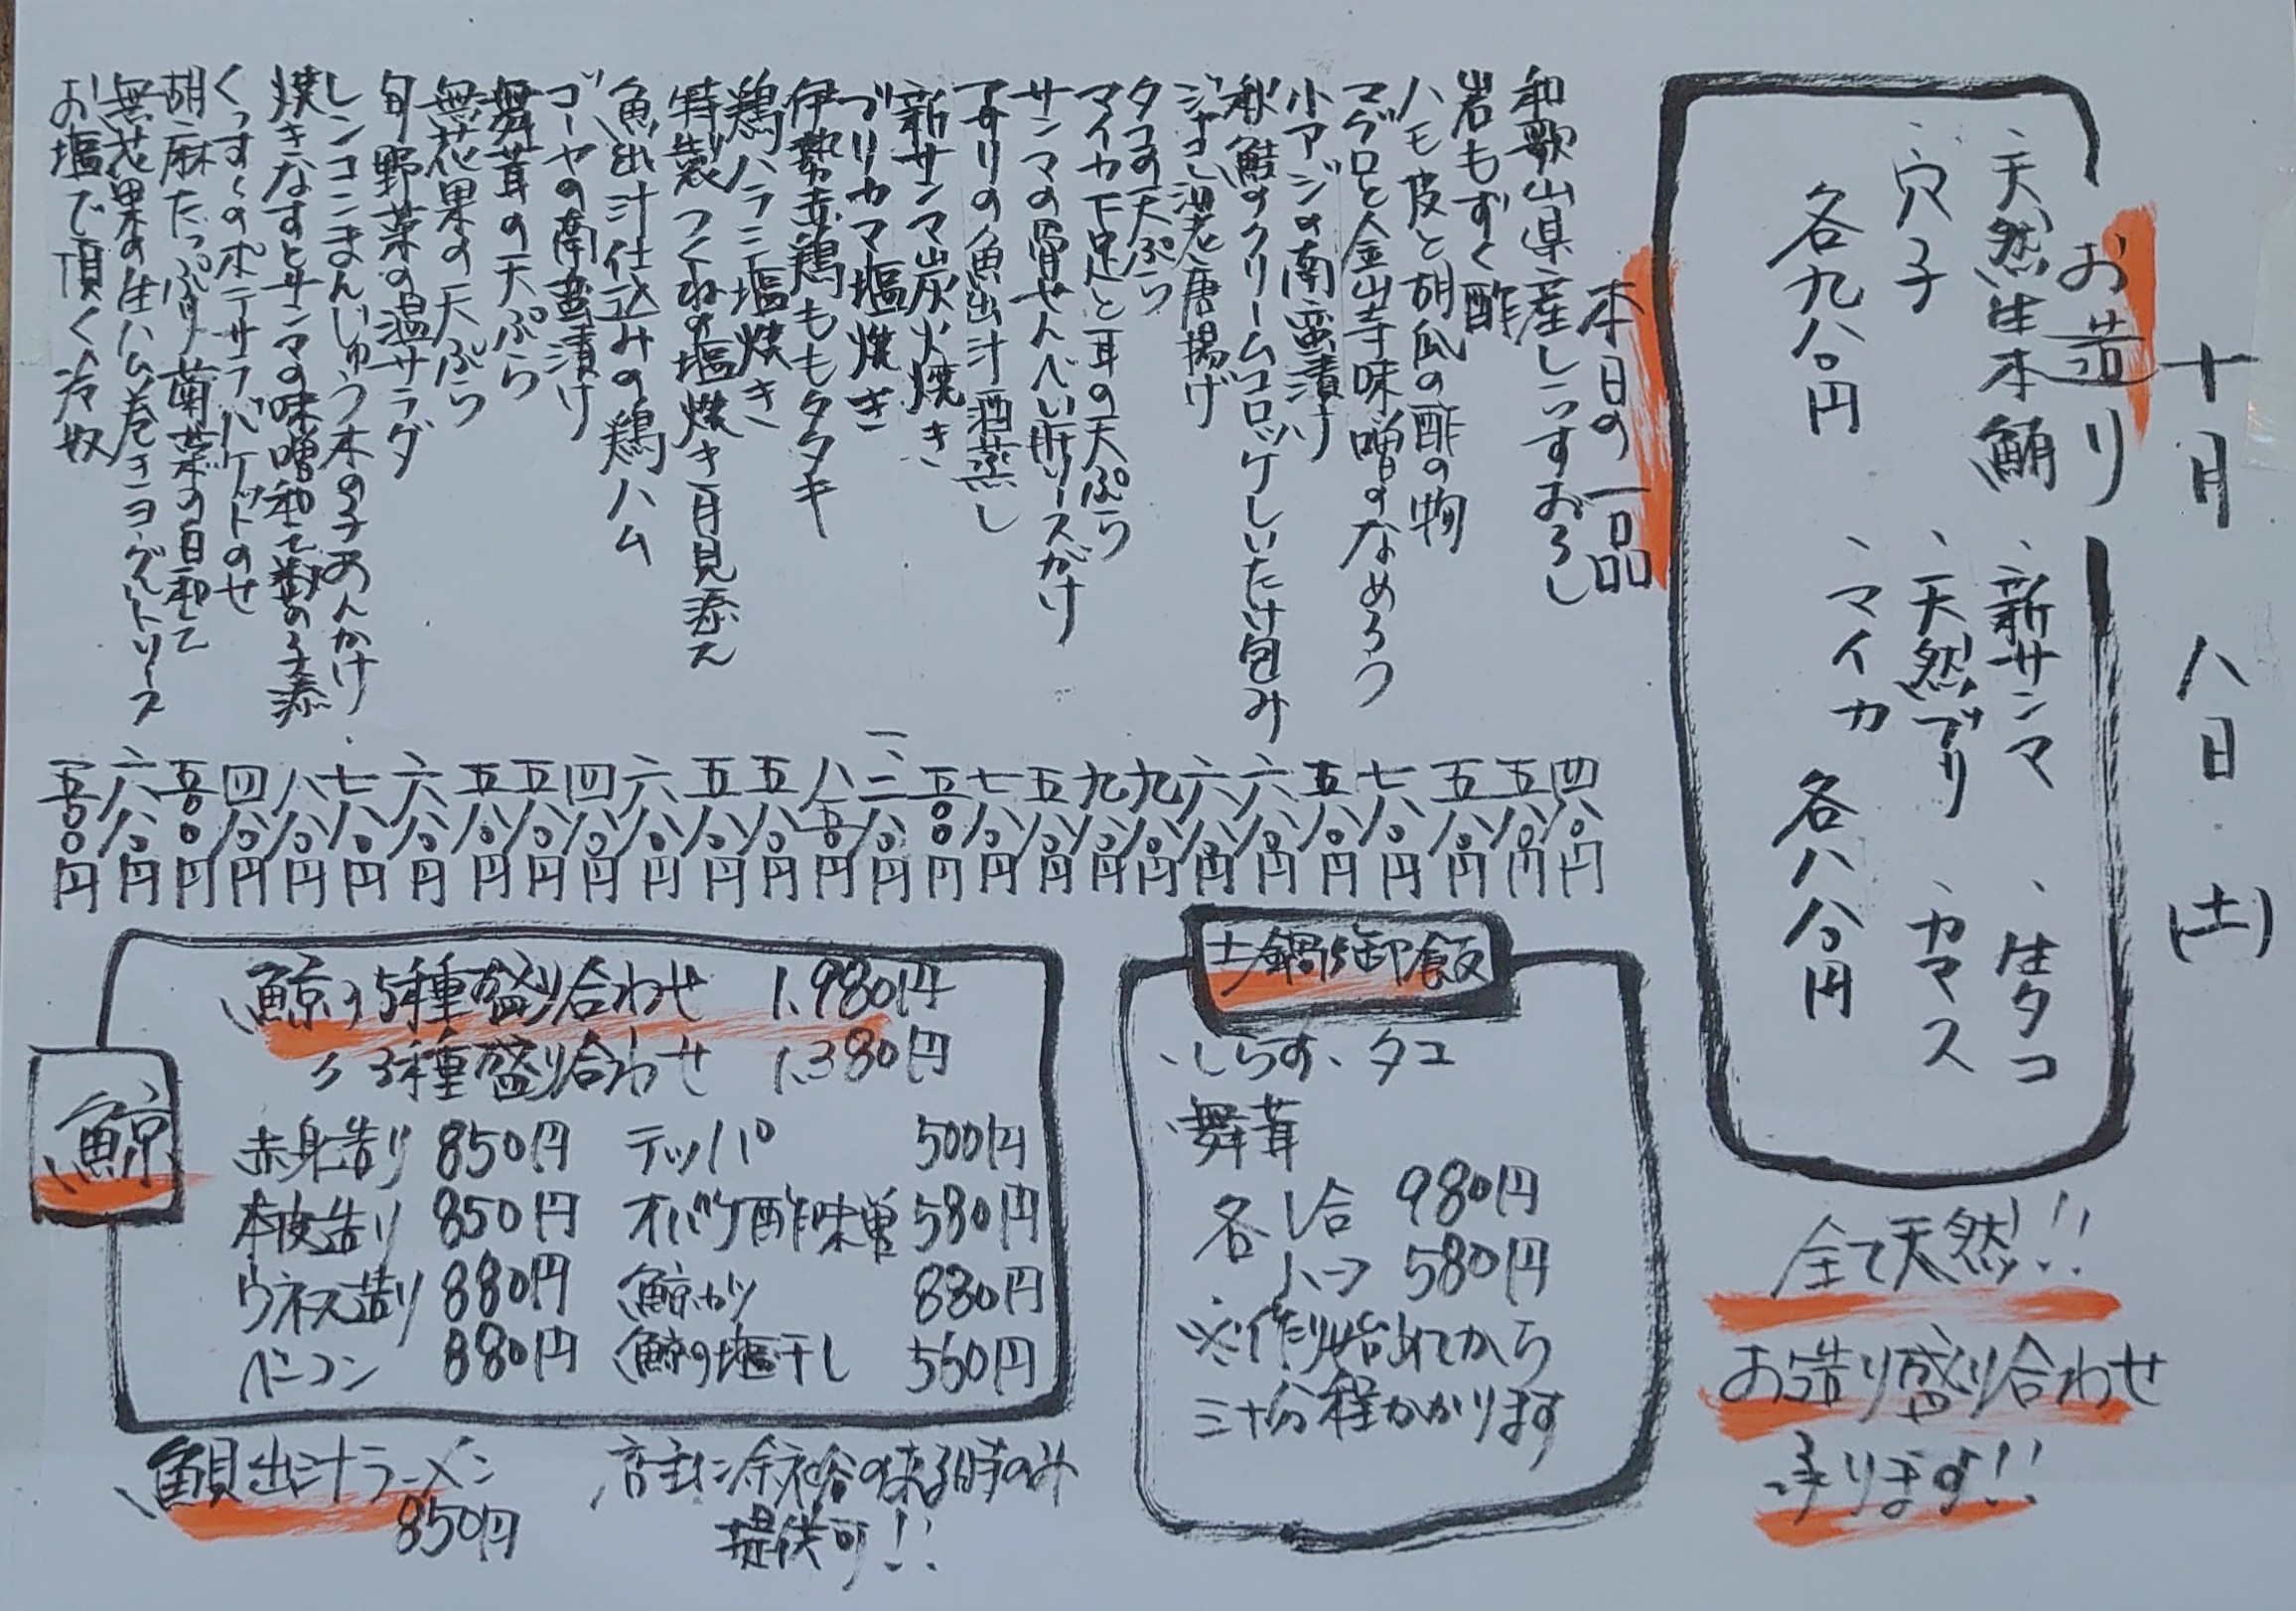 十月八日(土)
お造り
、天然生本鮪
、穴子
各九八〇円
、新サンマ
、生タコ
、天然ブリ
、カマス
、マイカ
各八八〇円
全て天然!!
お造り盛り合わせ
承ります!!
本日の一品
和歌山県産しらすおろし 四八〇円
岩もずく酢 五八〇円
ハモ皮と胡瓜の酢の物 五八〇円
マグロと金山寺味噌のなめろう 七八〇円
小アジの南蛮漬け 五八〇円
秋鮭のクリームコロッケしいたけ包み 六八〇円
海老唐揚げ 六八〇円
タコの天ぷら 九八〇円
マイカ下足と耳の天ぷら 九八〇円
サンマの骨せんべい肝ソースがけ 五八〇円
アサリの魚出汁酒蒸し 七八〇円
新サンマ炭火焼き 五〇〇円
ブリカマ塩焼き 一、二八〇円
伊勢赤鶏ももタタキ 八五〇円
鶏ハラミ塩焼き 五八〇円
特製つくねの塩焼き月見添え 五八〇円
魚出汁仕込みの鶏ハム 六八〇円
ゴーヤの南蛮漬け 四八〇円
舞茸の天ぷら 五八〇円
無花果の天ぷら 五八〇円
旬野菜の温サラダ 六八〇円
レンコンまんじゅう木の子あんかけ 七八〇円
焼きなすとサンマの味噌和え 八八〇円
くんすくのポテサラバケットのせ 四八〇円
胡麻たっぷり菊菜の白和え 五〇〇円
無花果の生ハム巻きヨーグルトソース 六八〇円
お塩で頂く冷奴 五〇〇円
土鍋御飯
、しらす、タコ
、舞茸
各1合 980円
ハーフ 580円
※作り始めてから
三十分程かかります
鯨
鯨の5種盛り合わせ 1,980円
〃 3種盛り合わせ 1,380円
赤身造り 850円 テッパ 500円
本皮造り 850円 オバケ酢味噌 580円
ウネス造り 880円 鯨カツ 880円
ベーコン 880円 鯨の塩干し 550円
出汁ラーメン
850円
店主に余裕の来る時のみ
提供可!!